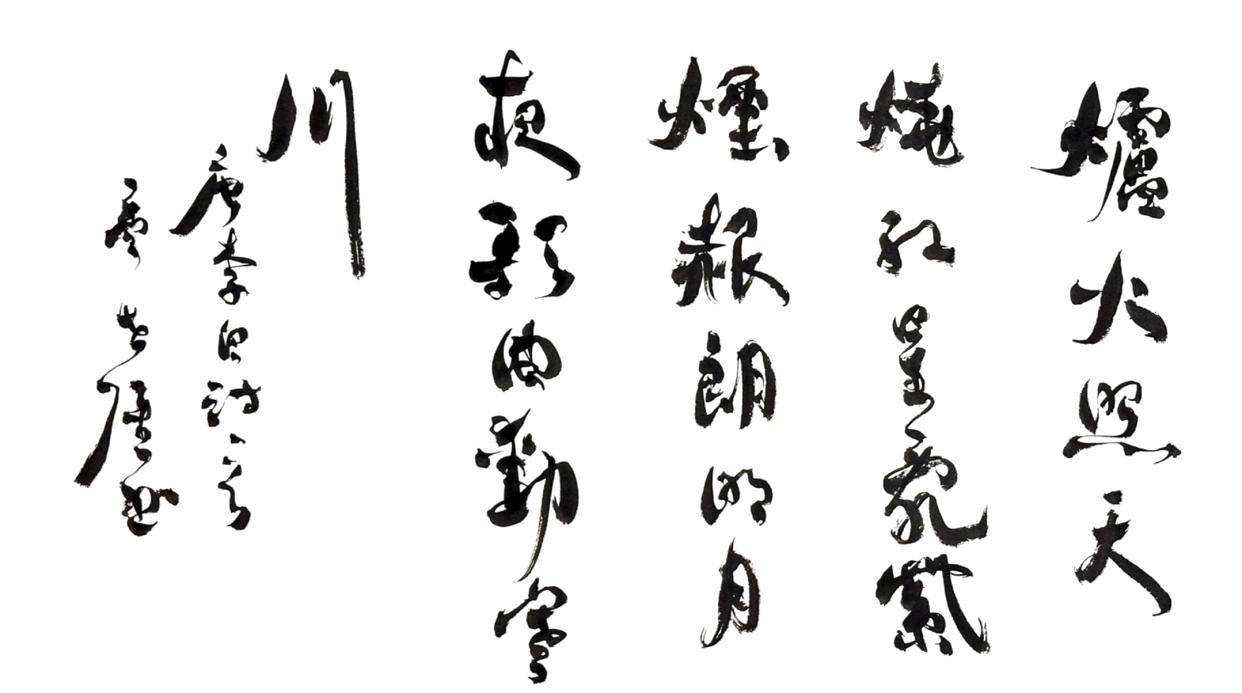 爐火照天
地紅星亂紫
煙赧朗明月
夜歌曲動寒
川
唐李白詩
書